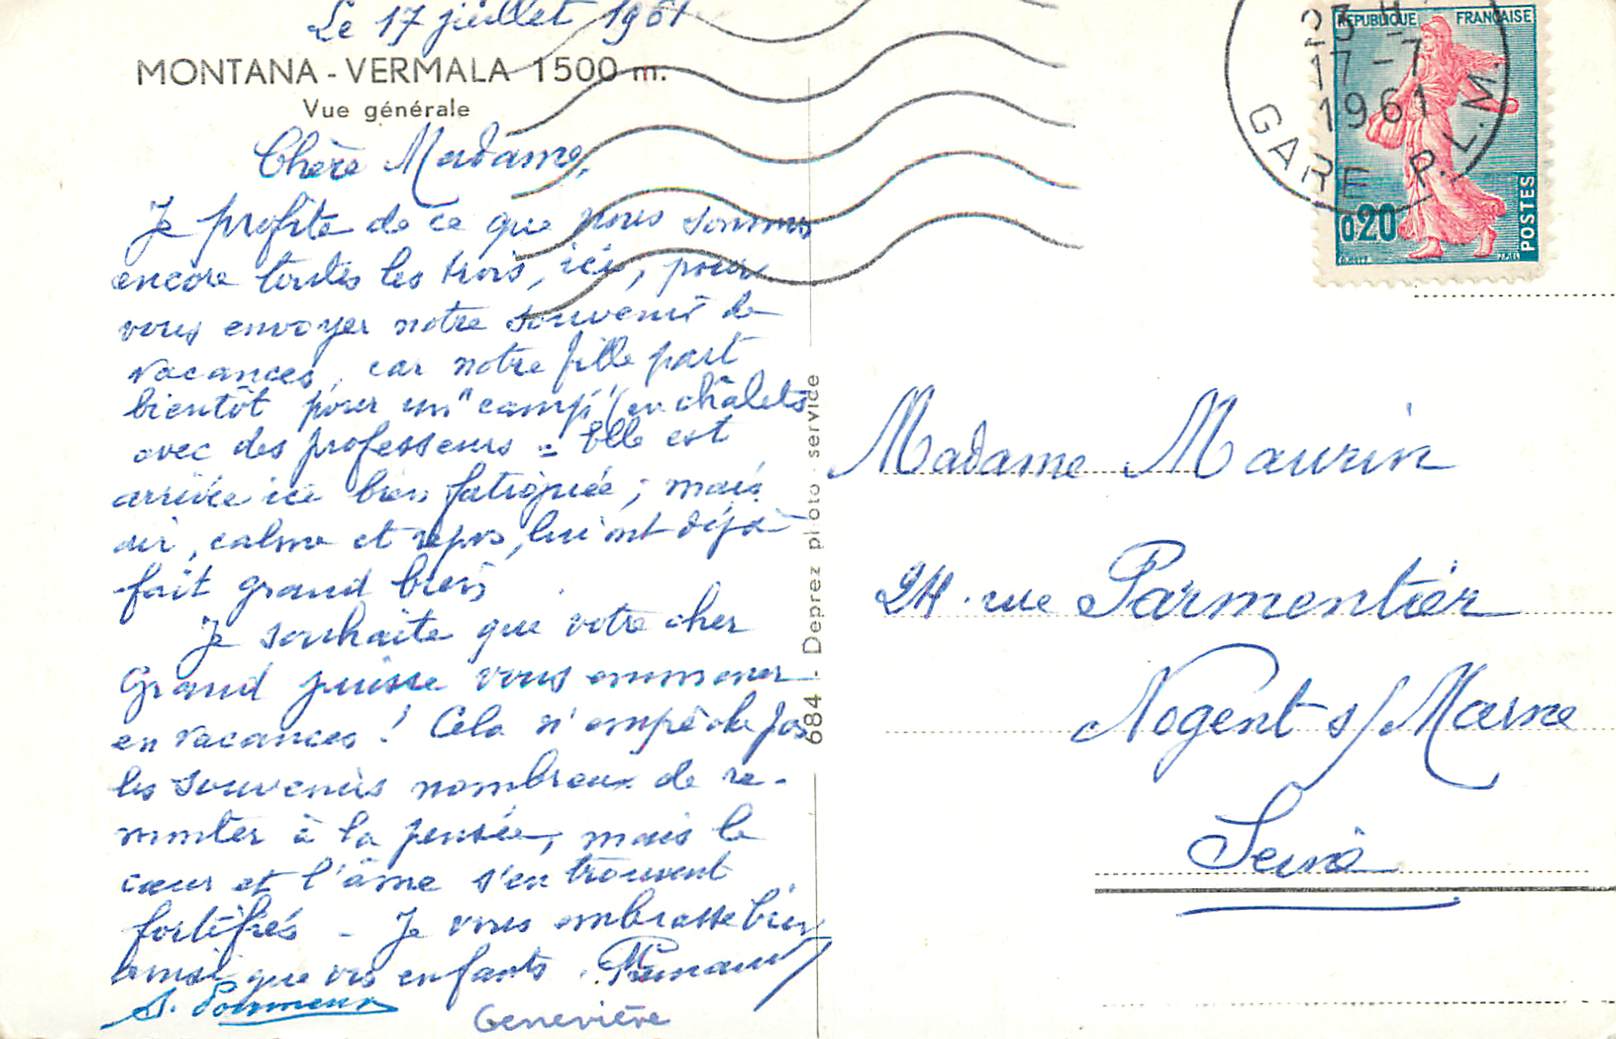 Le 17 juillet 1961
MONTANA - VERMALA 1500 m.
Vue générale
Chère Madame,
Je profite de ce que nous sommes
encore toutes les trois, ici, pour
vous envoyer notre souvenir de
vacances, car notre fille part
bientôt pour un "camp" (en châlets
avec des professeurs = Elle est
arrivée ici bien fatiguée ; mais
air, calme et repos, lui ont déjà
fait grand bien
Je souhaite que votre cher
Grand puisse vous emmener
en vacances ! Cela n'empêche pas
les souvenirs nombreux de re-
monter à la pensée, mais le
cœur et l'âme s'en trouvent
fortifiés - Je vous embrasse bien
ainsi que vos enfants.
Geneviève
684 - Deprez photo service
RÉPUBLIQUE FRANÇAISE
0,20
POSTES
23 H
17 - 7
1961
GARE P.L.M.
Madame Maurin
24 rue Parmentier
Nogent s/Marne
Seine